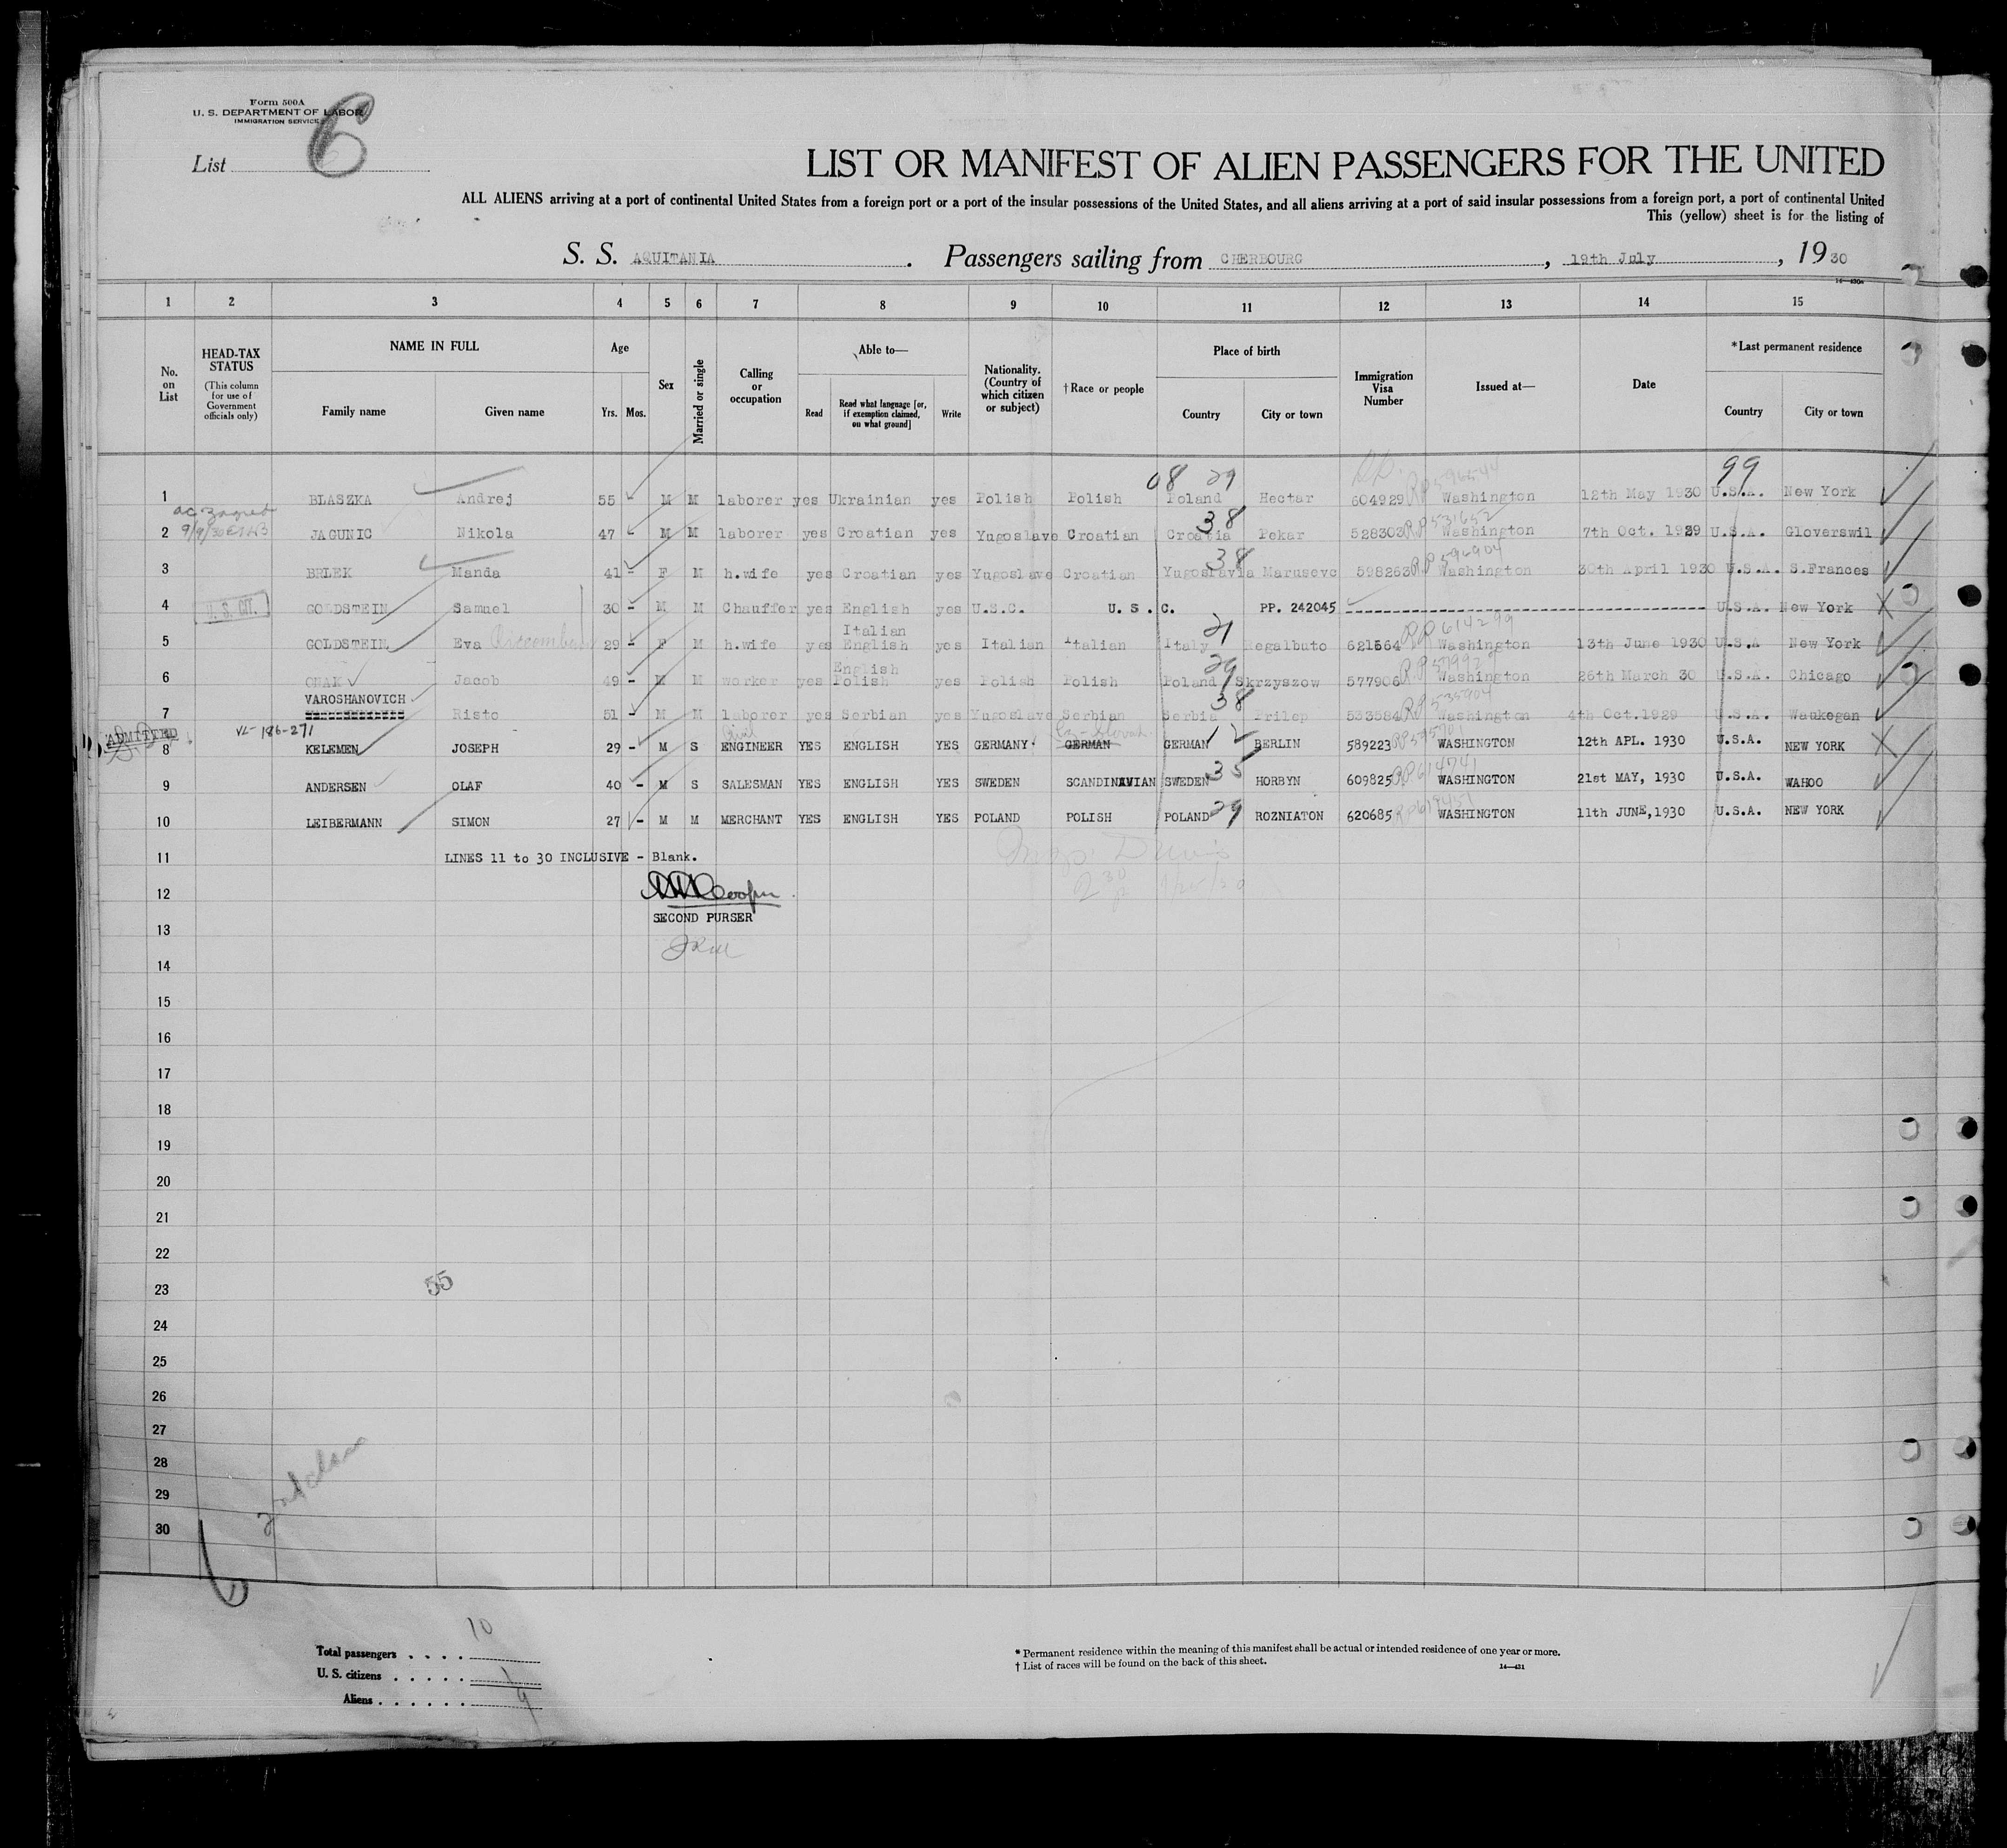 Form 500A
U. S. DEPARTMENT OF LABOR
IMMIGRATION SERVICE
List 6
LIST OR MANIFEST OF ALIEN PASSENGERS FOR THE UNITED
ALL ALIENS arriving at a port of continental United States from a foreign port or a port of the insular possessions of the United States, and all aliens arriving at a port of said insular possessions from a foreign port, a port of continental United
This (yellow) sheet is for the listing of
S. S. AQUITANIA . Passengers sailing from CHERBOURG , 19th July , 19 30
1 2 3 4 5 6 7 8 9 10 11 12 13 14 15
No. on List
HEAD-TAX STATUS (This column for use of Government officials only)
NAME IN FULL Family name Given name
Age Yrs. Mos.
Sex
Married or single
Calling or occupation
Able to— Read Read what language [or, if exemption claimed, on what ground] Write
Nationality. (Country of which citizen or subject)
†Race or people
Place of birth Country City or town
Immigration Visa Number
Issued at—
Date
*Last permanent residence Country City or town
08 29 99
1 BLASZKA Andrej 55 M M laborer yes Ukrainian yes Polish Polish Poland Hectar 604929 Washington 12th May 1930 U.S.A. New York
38
2 JAGUNIC Nikola 47 M M laborer yes Croatian yes Yugoslave Croatian Croatia Pekar 528303 Washington 7th Oct. 1929 U.S.A. Gloverswil
38
3 BRLEK Manda 41 - F M h.wife yes Croatian yes Yugoslave Croatian Yugoslavia Marusevc 598263 RP 596904 Washington 30th April 1930 U.S.A. S.Frances
4 U. S. CIT. GOLDSTEIN Samuel 30 - M M Chauffer yes English yes U.S.C. U. S. C. PP. 242045 U.S.A. New York
Italian 21
5 GOLDSTEIN Eva 29 - F M h.wife yes English yes Italian Italian Italy Regalbuto 621564 RP 614299 Washington 13th June 1930 U.S.A New York
English 29
6 ONAK Jacob 49 - M M worker yes Polish yes Polish Polish Poland Skrzyszow 577906 Washington 26th March 30 U.S.A. Chicago
VAROSHANOVICH 38
7 Risto 51 - M M laborer yes Serbian yes Yugoslave Serbian Serbia Prilep 533584 RP 535904 Washington 4th Oct.1929 U.S.A. Waukegan
ADMITTED VL-186-271 Civil 12
8 KELEMEN JOSEPH 29 - M S ENGINEER YES ENGLISH YES GERMANY GERMAN GERMAN BERLIN 589223 WASHINGTON 12th APL. 1930 U.S.A. NEW YORK
35
9 ANDERSEN OLAF 40 - M S SALESMAN YES ENGLISH YES SWEDEN SCANDINAVIAN SWEDEN HORBYN 609825 RP 614741 WASHINGTON 21st MAY, 1930 U.S.A. WAHOO
29
10 LEIBERMANN SIMON 27 - M M MERCHANT YES ENGLISH YES POLAND POLISH POLAND ROZNIATON 620685 WASHINGTON 11th JUNE,1930 U.S.A. NEW YORK
11 LINES 11 to 30 INCLUSIVE - Blank.
12 Cooper
SECOND PURSER
13
14
15
16
17
18
19
20
21
22
23 55
24
25
26
27
28
29
30
2nd class
Total passengers . . . . 10
U. S. citizens . . . . . 1
Aliens . . . . . . 9
* Permanent residence within the meaning of this manifest shall be actual or intended residence of one year or more.
† List of races will be found on the back of this sheet.
14—431